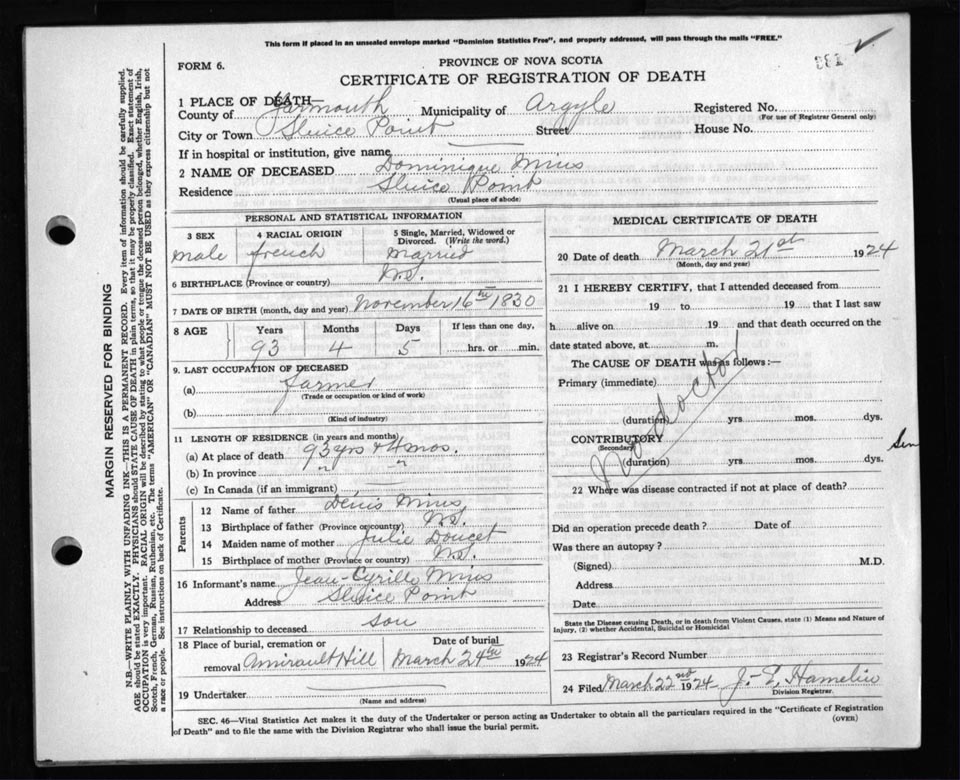 This form if placed in an unsealed envelope marked "Dominion Statistics Free", and properly addressed, will pass through the mails "FREE."
FORM 6.
PROVINCE OF NOVA SCOTIA
CERTIFICATE OF REGISTRATION OF DEATH
1 PLACE OF DEATH—
County of Yarmouth Municipality of Argyle Registered No.
(For use of Registrar General only)
City or Town Sluice Point Street House No.
If in hospital or institution, give name
2 NAME OF DECEASED Dominique Mius
Residence Sluice Point
(Usual place of abode)
PERSONAL AND STATISTICAL INFORMATION
3 SEX 4 RACIAL ORIGIN 5 Single, Married, Widowed or Divorced. (Write the word.)
male french Married
6 BIRTHPLACE (Province or country) N.S.
7 DATE OF BIRTH (month, day and year) November 16th 1830
8 AGE Years Months Days If less than one day,
93 4 5 hrs. or min.
9. LAST OCCUPATION OF DECEASED
(a) farmer
(Trade or occupation or kind of work)
(b)
(Kind of industry)
11 LENGTH OF RESIDENCE (in years and months)
(a) At place of death 93 yrs & 4 mos.
(b) In province " "
(c) In Canada (if an immigrant)
Parents
12 Name of father Denis Mius
13 Birthplace of father (Province or country) N.S.
14 Maiden name of mother Julie Doucet
15 Birthplace of mother (Province or country) N.S.
16 Informant's name Jean-Cyrille Mius
Address Sluice Point
17 Relationship to deceased son
18 Place of burial, cremation or removal Amirault Hill Date of burial March 24th 1924
19 Undertaker
(Name and address)
MEDICAL CERTIFICATE OF DEATH
20 Date of death March 21st 1924
(Month, day and year)
21 I HEREBY CERTIFY, that I attended deceased from
19 to 19 that I last saw
h alive on 19 and that death occurred on the
date stated above, at m.
The CAUSE OF DEATH was as follows:—
Primary (immediate)
No doctor
(duration) yrs. mos. dys.
CONTRIBUTORY
(Secondary)
(duration) yrs. mos. dys.
Sen
22 Where was disease contracted if not at place of death?
Did an operation precede death? Date of
Was there an autopsy?
(Signed) M.D.
Address
Date
State the Disease causing Death, or in death from Violent Causes, state (1) Means and Nature of
Injury, (2) whether Accidental, Suicidal or Homicidal
23 Registrar's Record Number
24 Filed March 22nd 1924 J. E. Hamelin
Division Registrar.
SEC. 46—Vital Statistics Act makes it the duty of the Undertaker or person acting as Undertaker to obtain all the particulars required in the "Certificate of Registration
of Death" and to file the same with the Division Registrar who shall issue the burial permit.
(OVER)
MARGIN RESERVED FOR BINDING
N.B.—WRITE PLAINLY WITH UNFADING INK—THIS IS A PERMANENT RECORD. Every item of information should be carefully supplied.
AGE should be stated EXACTLY. PHYSICIANS should STATE CAUSE OF DEATH in plain terms, so that it may be properly classified. Exact statement of
OCCUPATION is very important. RACIAL ORIGIN will be described by stating to what people or tongue the deceased person belonged, whether English, Irish,
Scotch, French, German, Russian, Ruthenian, etc. The terms "AMERICAN" OR "CANADIAN" MUST NOT BE USED as they express citizenship but not
a race or people. See instructions on back of Certificate.